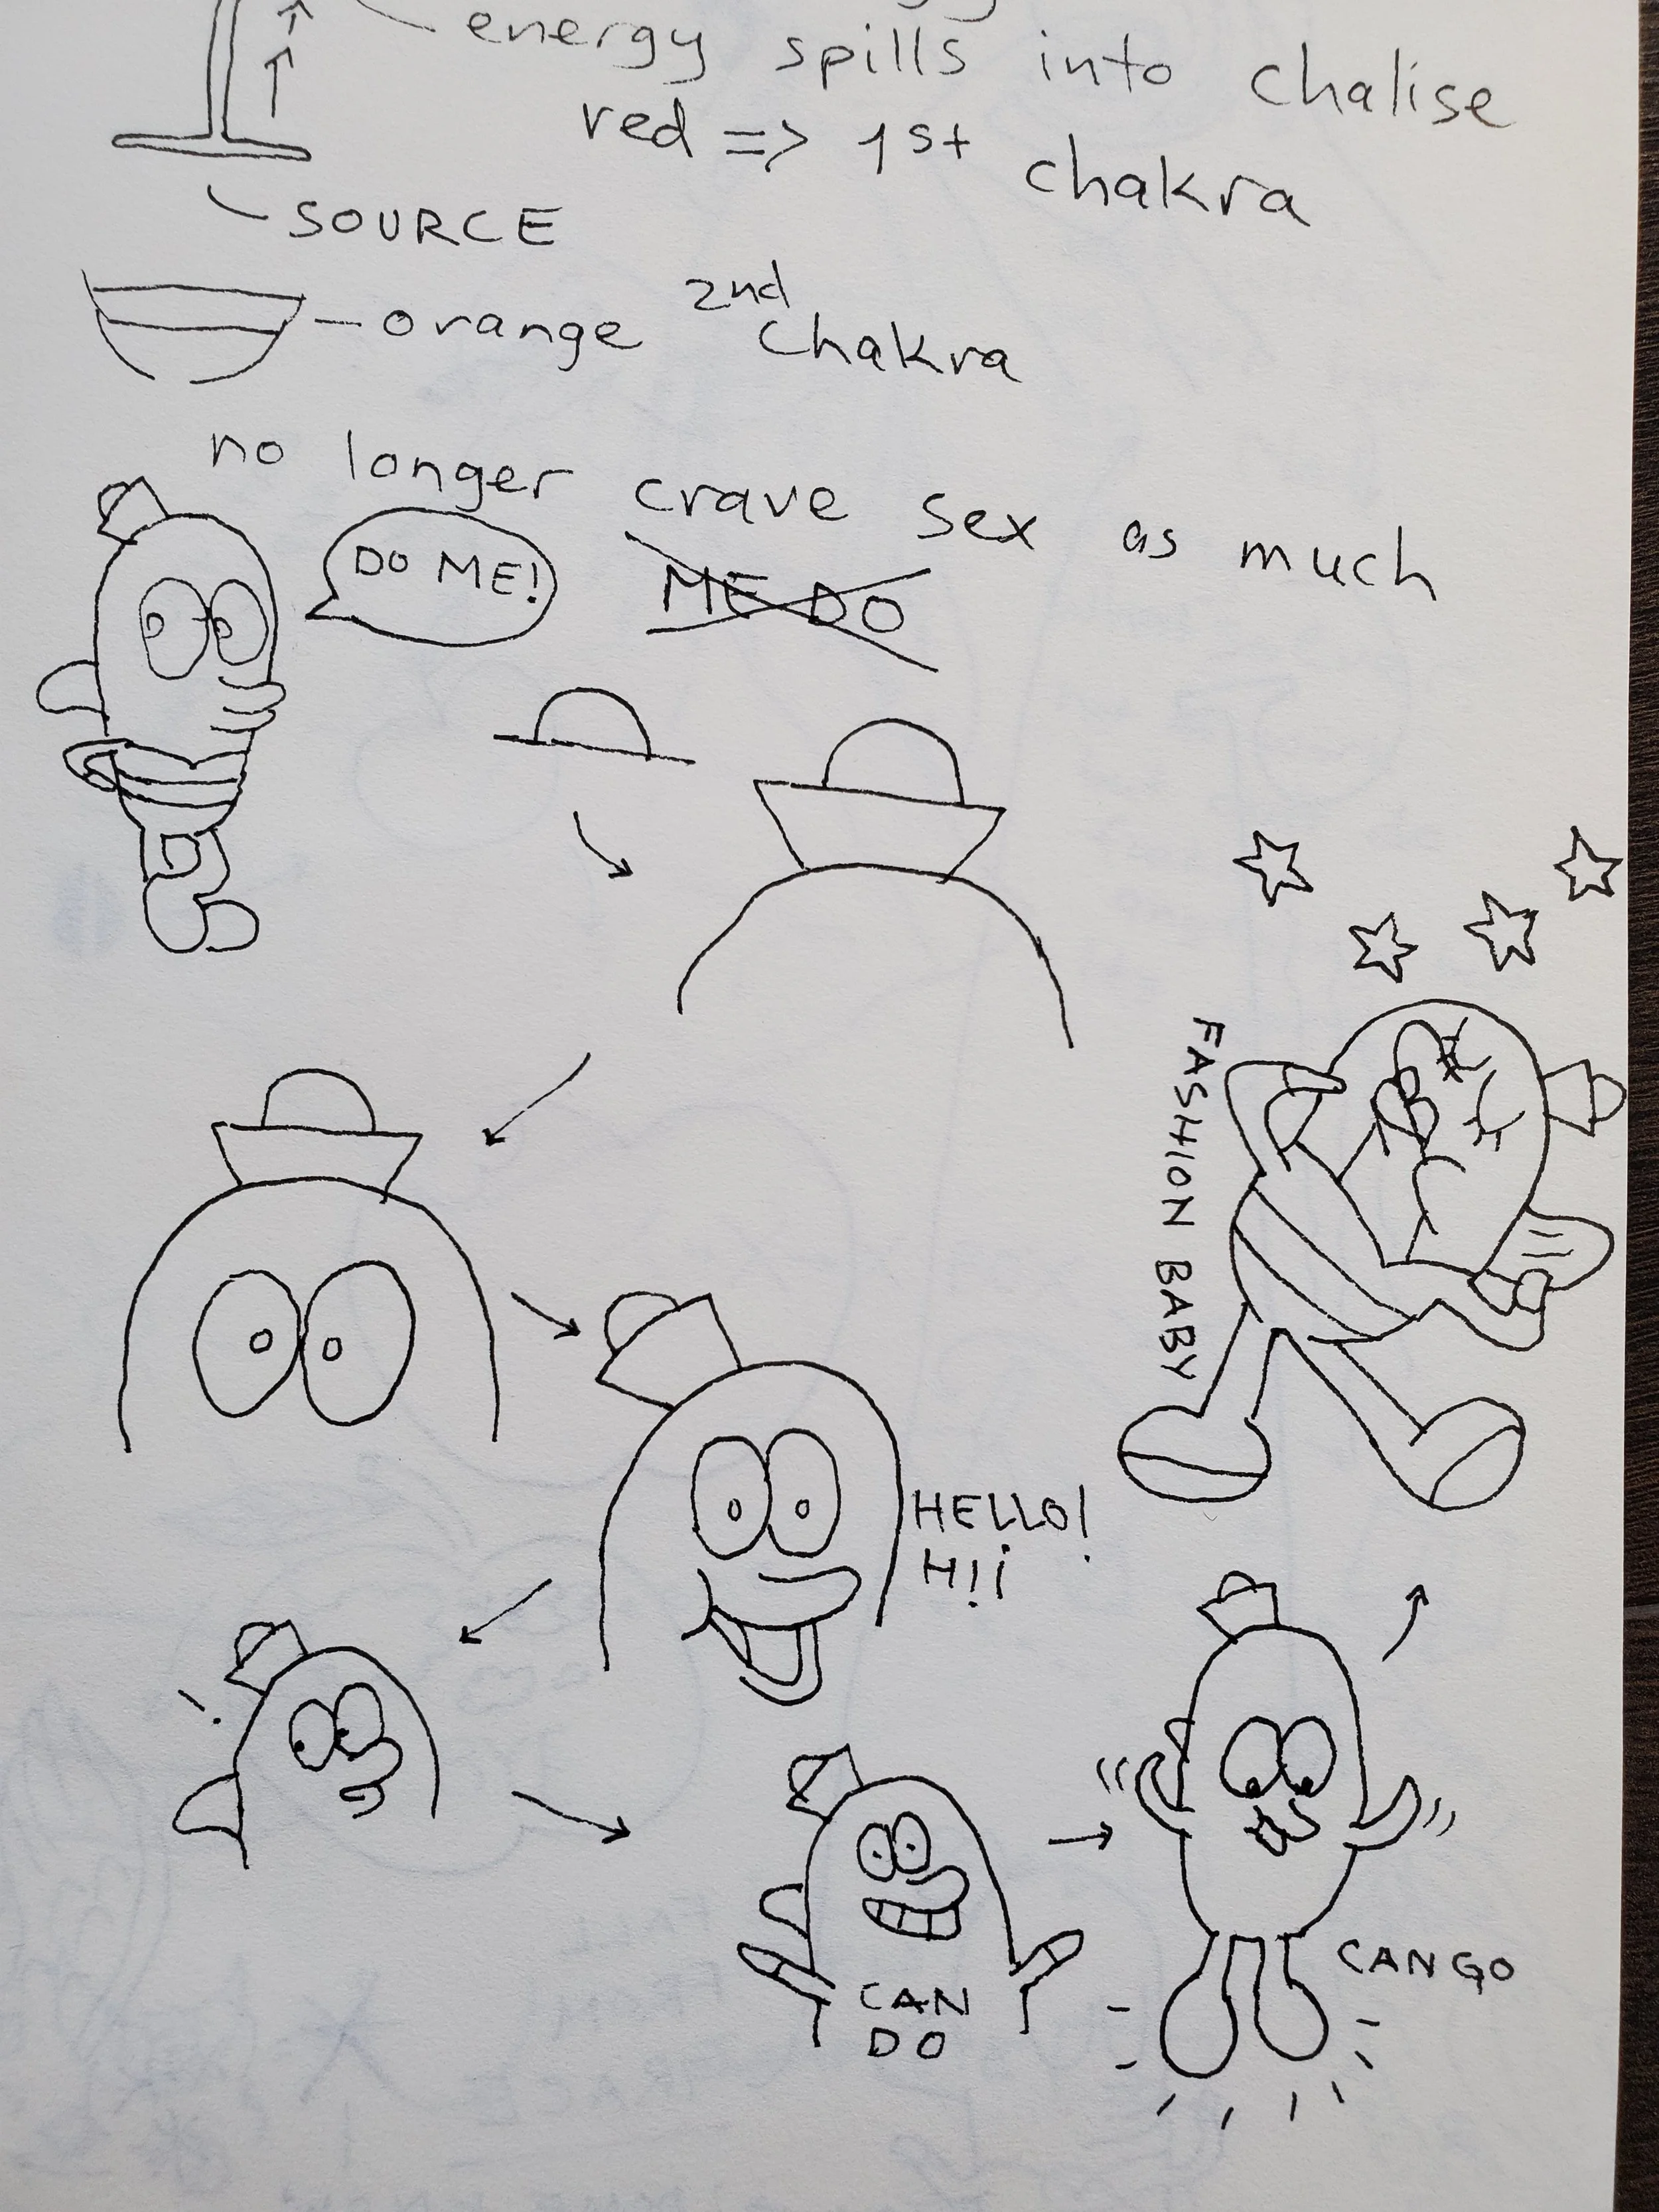 energy spills into chalise
red => 1st chakra
SOURCE
orange 2nd chakra
no longer crave sex as much
DO ME!
ME DO
FASHION BABY
HELLO!
H!i
CAN
DO
CAN GO